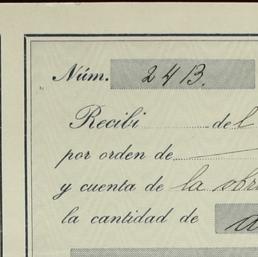 Núm. 2413.
Recibí del
por orden de
y cuenta de la
la cantidad de